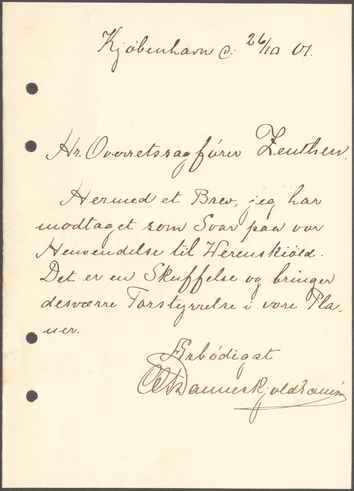 Kjøbenhavn d: 26/10 07.
Hr. Overretssagfører Zeuthen.
Hermed et Brev, jeg har
modtaget som Svar paa vor
Henvendelse til Werenskiold.
Det er en Skuffelse og bringer
desværre Forstyrrelse i vore Pla-
ner.
Ærbødigst
Danneskjold Samsøe